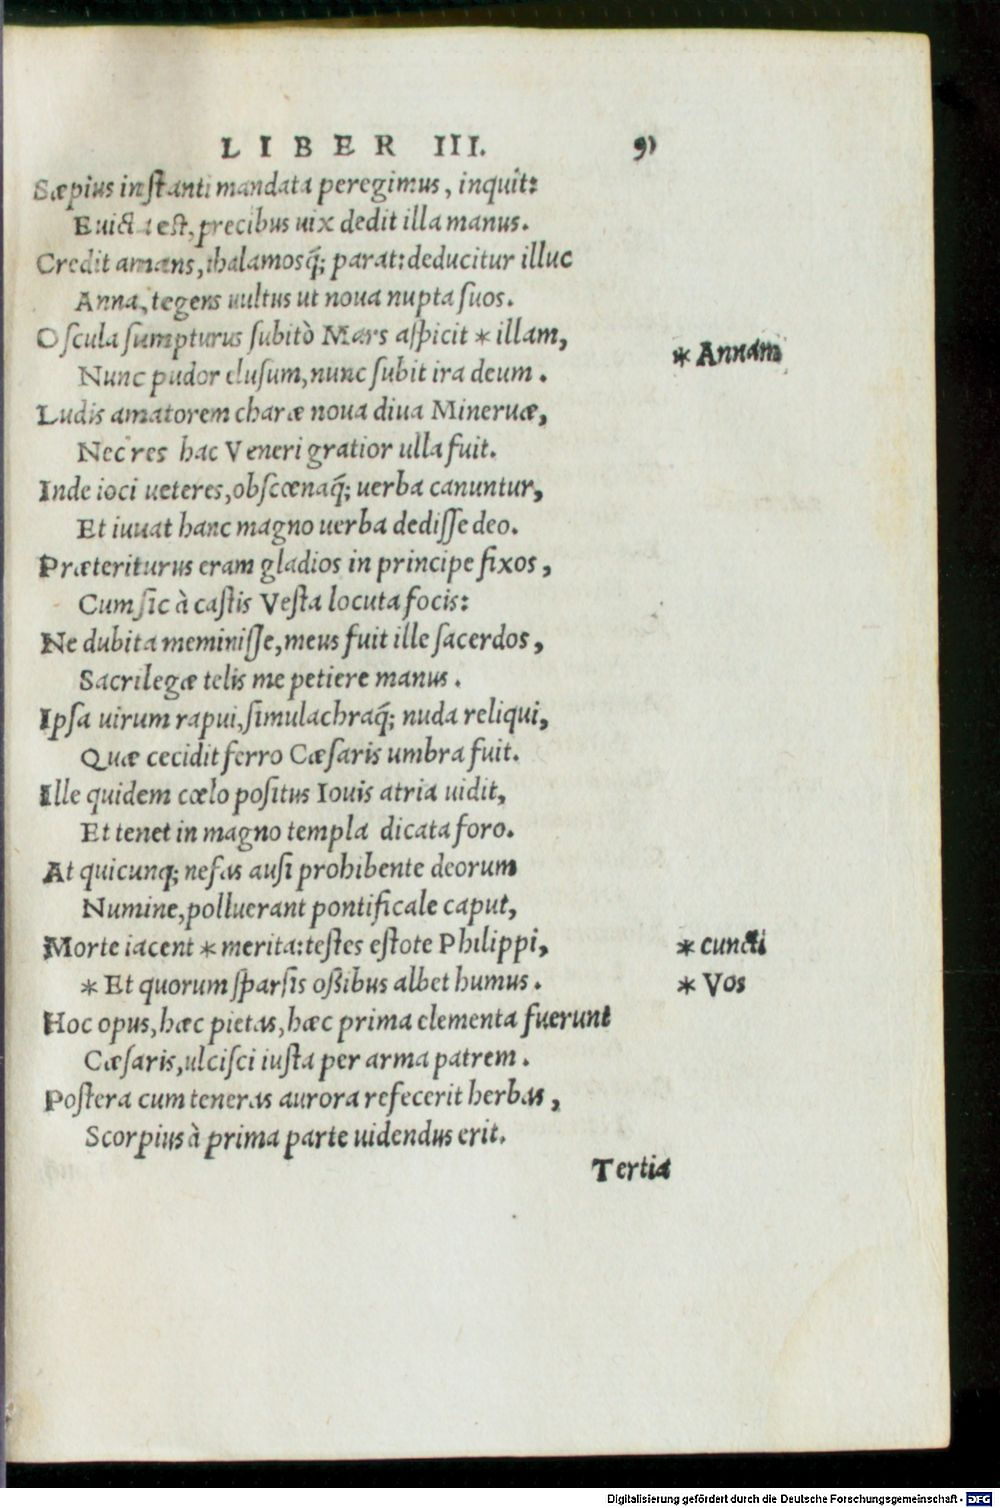 LIBER III. 91
Sæpius instanti mandata peregimus, inquit:
Euicta est, precibus uix dedit illa manus.
Credit amans, thalamosq́; parat: deducitur illuc
Anna, tegens uultus ut noua nupta suos.
Oscula sumpturus subitò Mars aspicit * illam,
* Annam
Nunc pudor elusum, nunc subit ira deum.
Ludis amatorem charæ noua diua Mineruæ,
Nec res hac Veneri gratior ulla fuit.
Inde ioci ueteres, obscœnaq́; uerba canuntur,
Et iuuat hanc magno uerba dedisse deo.
Præteriturus eram gladios in principe fixos,
Cum sic à castis Vesta locuta focis:
Ne dubita meminisse, meus fuit ille sacerdos,
Sacrilegæ telis me petiere manus.
Ipsa uirum rapui, simulachraq́; nuda reliqui,
Quæ cecidit ferro Cæsaris umbra fuit.
Ille quidem cœlo positus Iouis atria uidit,
Et tenet in magno templa dicata foro.
At quicunq; nefas ausi prohibente deorum
Numine, polluerant pontificale caput,
Morte iacent * merita: testes estote Philippi,
* cuncti
* Et quorum sparsis ossibus albet humus.
* Vos
Hoc opus, hæc pietas, hæc prima elementa fuerunt
Cæsaris, ulcisci iusta per arma patrem.
Postera cum teneras aurora refecerit herbas,
Scorpius à prima parte uidendus erit.
Tertia
Digitalisierung gefördert durch die Deutsche Forschungsgemeinschaft - DFG